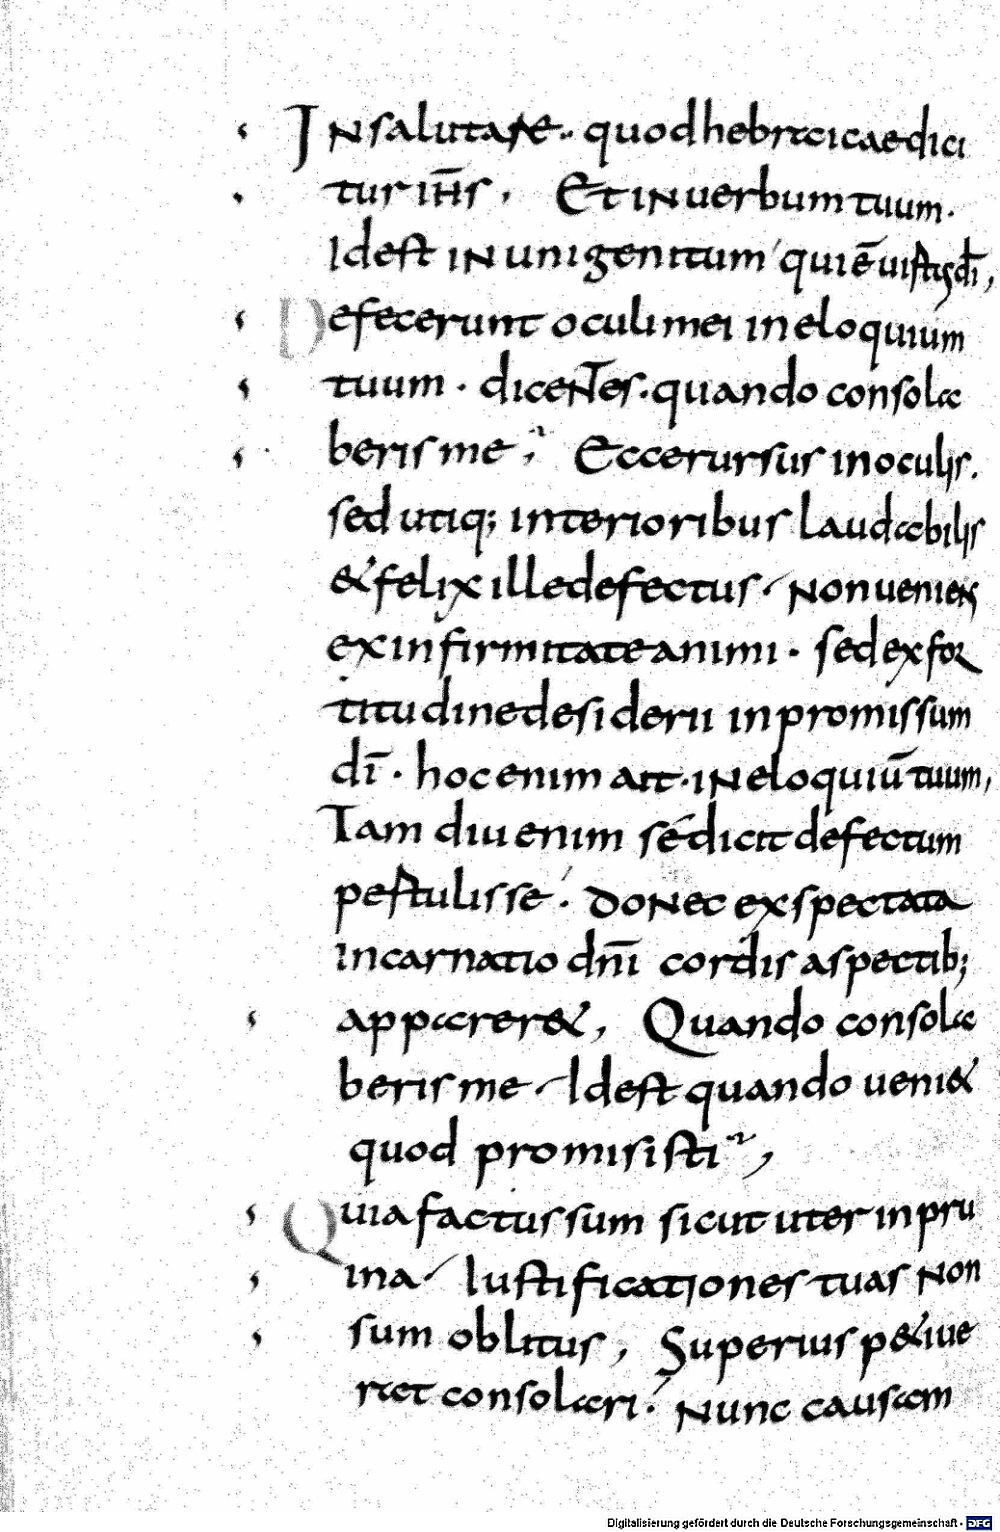 IN salutare·. quod hebraicae dici
tur iħs, Et in uerbum tuum.
Id est in unigenitum qui ē uirtus di,
Defecerunt oculi mei in eloquium
tuum · dicentes · quando consola
beris me; Ecce rursus in oculis.
sed utiq; interioribus laudabilis
& felix ille defectus· non ueniens
ex infirmitate animi · sed ex for
titudine desiderii in promissum
dī · hoc enim ait · in eloquiū tuum,
Tam diu enim se dicit defectum
pertulisse · donec exspectata
incarnatio dn̄i cordis aspectib;
appareret&, Quando consola
beris me Id est quando ueni&
quod promisisti,
Quia factus sum sicut uter in pru
ina Iustificationes tuas non
sum oblitus, Superius p&iue
rat consolari· Nunc causam
Digitalisierung gefördert durch die Deutsche Forschungsgemeinschaft - DFG